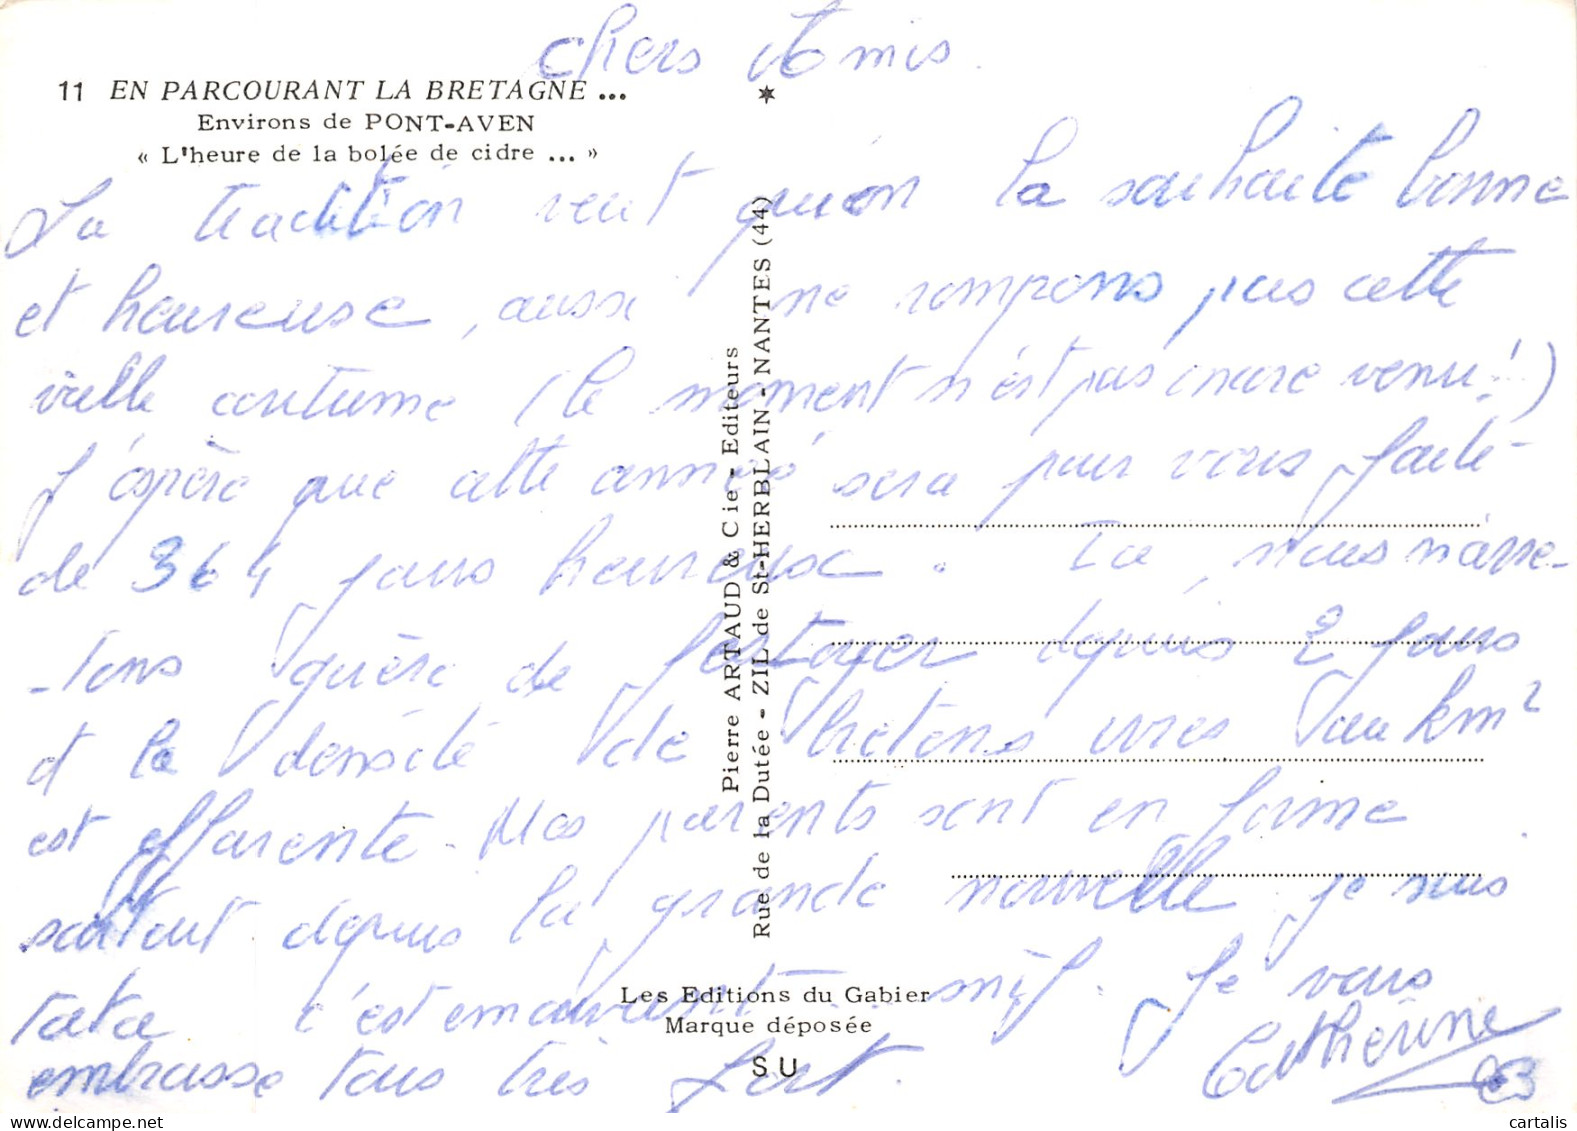 chers Amis
11 EN PARCOURANT LA BRETAGNE ...
Environs de PONT-AVEN
« L'heure de la bolée de cidre ... »
La tradition veut qu'on la souhaite bonne
et heureuse, aussi ne rompons pas cette
vieille coutume (le moment n'est pas encore venu!)
J'espère que cette année sera pour vous faite
de 364 jours heureux. Ici, nous n'arrê-
-tons guère de festoyer depuis 2 jours
et la densité de bretons ivres au km²
est effarente. Mes parents sont en forme
surtout depuis la grande nouvelle je suis
tata. c'est émouvant snif. Je vous
embrasse tous très fort.
Catherine
Pierre ARTAUD & Cie - Editeurs
Rue de la Dutée - ZIL de St-HERBLAIN - NANTES (44)
Les Editions du Gabier
Marque déposée
SU
cartalis